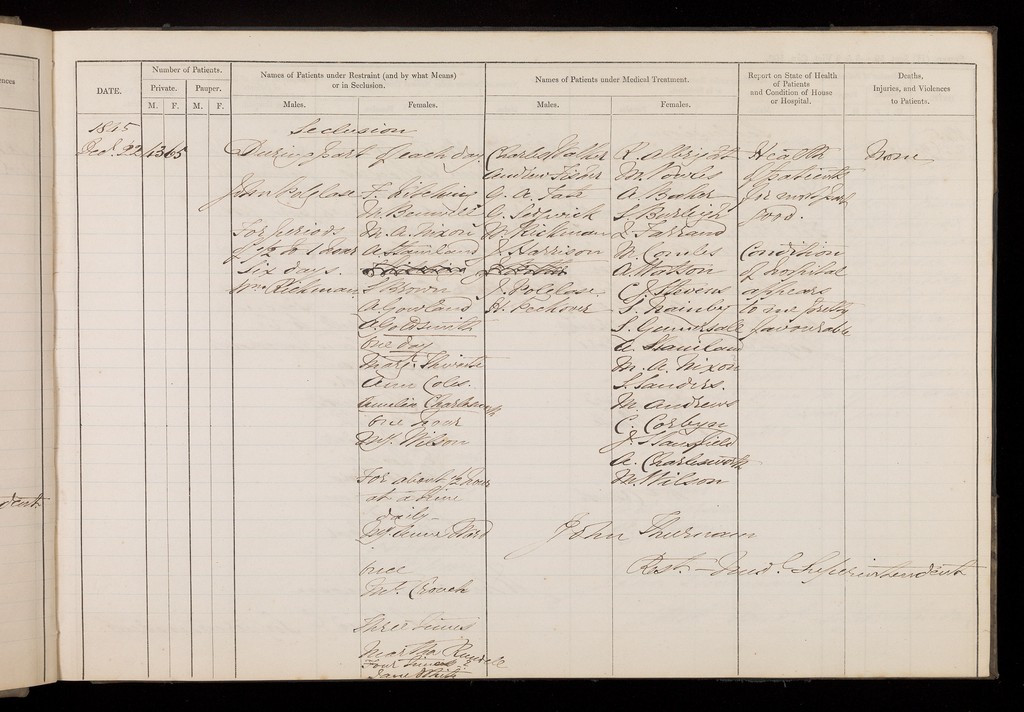 ences
DATE.
Number of Patients.
Private. Pauper.
M. F. M. F.
Names of Patients under Restraint (and by what Means)
or in Seclusion.
Males. Females.
Names of Patients under Medical Treatment.
Males. Females.
Report on State of Health
of Patients
and Condition of House
or Hospital.
Deaths,
Injuries, and Violences
to Patients.
1845
22
Seclusion
During part of each day
John Polglase
For periods
of 1/2 to 1 hour
six days.
Wm Rickman
M. Benwell
M. A. Nixon
A. Staniland
S. Brown
A. Gowland
A. Goldsmith
One day
Ann Coles.
Amelia Charlesworth
One hour
My. Wilson
For about 1/2 hour
at a time
daily
Ward
Once
Crouch
Three times
Martha
Four times
Jane White
Charles Walker
Andrew Fisher
G. A. Tate
C. Sedgwick
W. Rickman
J. Harrison
J. Polglase
H. Peckover
R. Albright
M. Fowles
A. Baker
S. Burleigh
Farrand
M. Combes
A. Watson
C. J. Stevens
S. Gummersall
A. Staniland
M. A. Nixon
S. Sanders.
M. Andrews
C. Corbyn
J. Stansfield
A. Charlesworth
M. Wilson
Health
of patients
for most part
good.
Condition
of hospital
appears
to me pretty
favourable
None
John Thurnam
Rest. Superintendent
dent